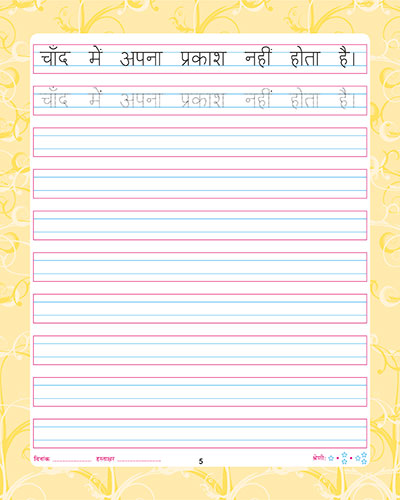 चाँद में अपना प्रकाश नहीं होता है।
चाँद में अपना प्रकाश नहीं होता है।
दिनांक ..................... हस्ताक्षर ........................ 5 श्रेणी: